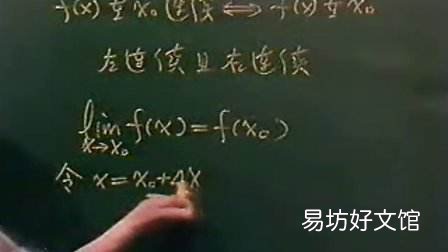 f(x)在x₀连续 ⟺ f(x)在x₀
左连续且右连续
lim f(x)=f(x₀)
x→x₀
令 x=x₀+Δx
易坊好文馆